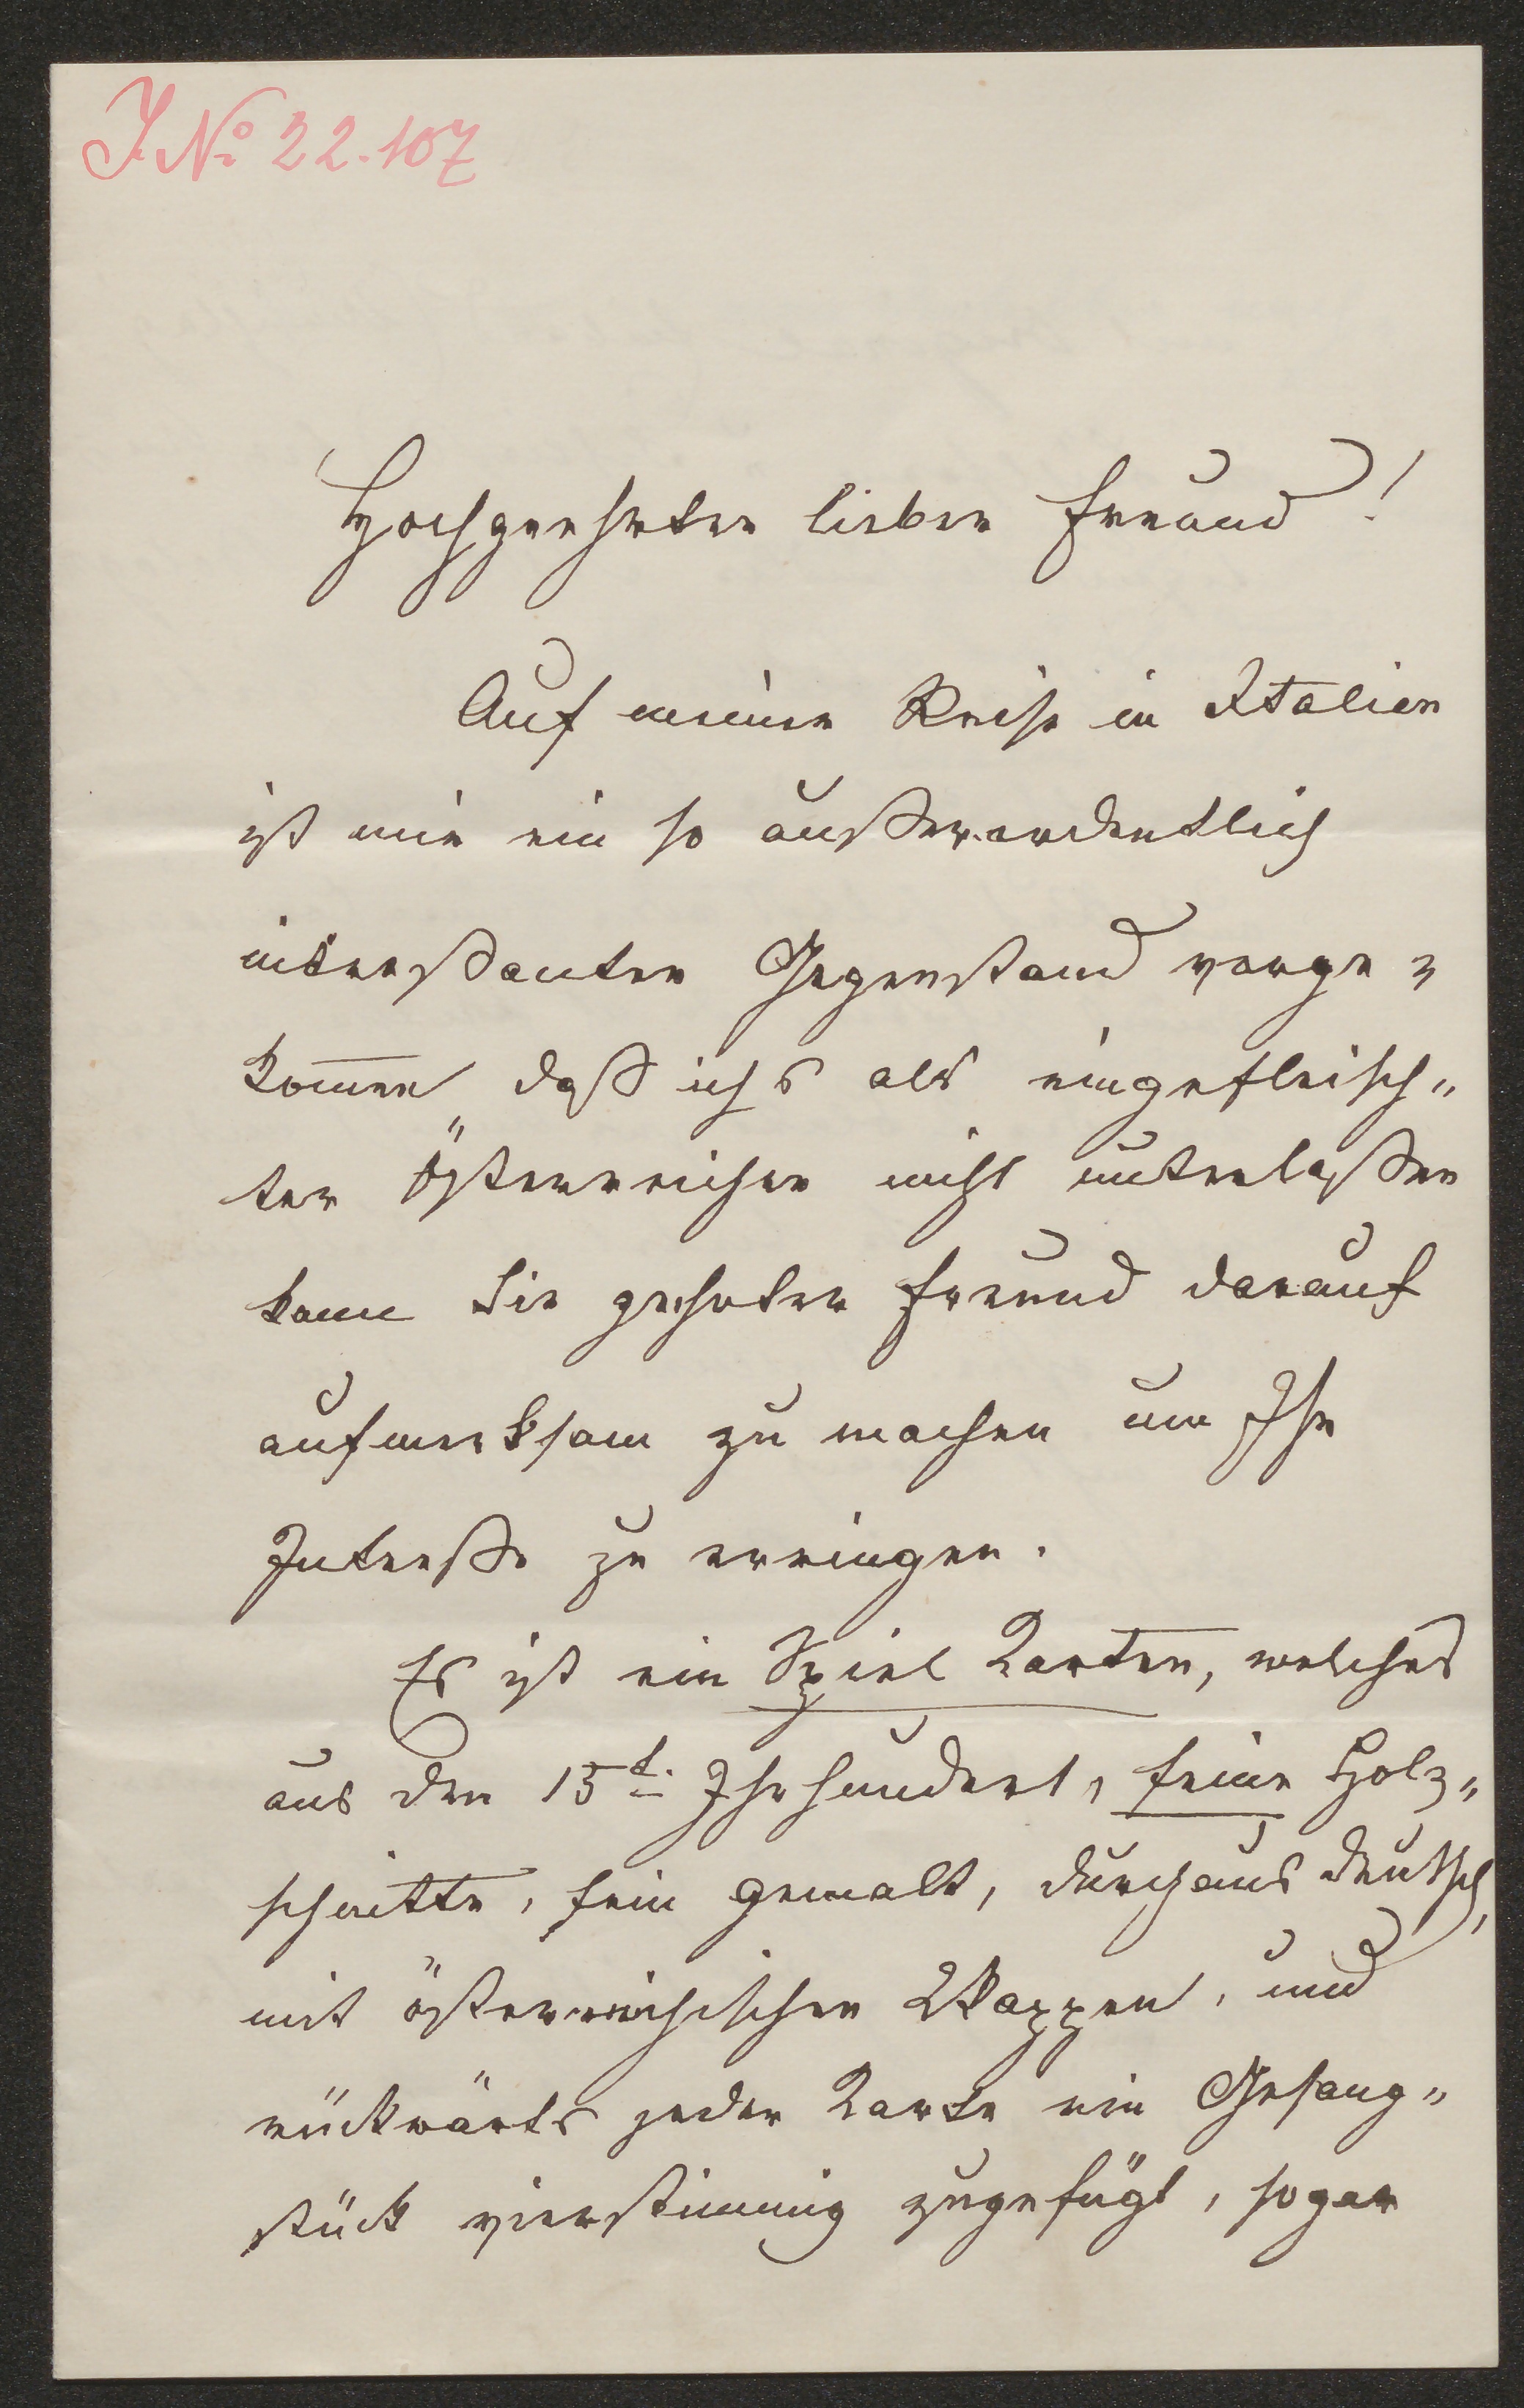 J. No 22.107
Hochgeehrter lieber Freund!
Auf meiner Reise in Italien
ist mir ein so außerordentlich
intereßanter Gegenstand vorge=
kom̅en, daß ichs als eingefleisch„
ter Österreicher nicht unterlaßen
kann Sie geehrter Freund darauf
aufmerksam zu machen um Ihr
Intereße zu erringen.
Es ist ein Spiel Karten, welches
aus den 15t. Jhrhundert, feine Holz„
schnitte, fein gemalt, durchaus deutsch,
mit österreichischen Wappen, und
rückwärts jeder Karte ein Gesang„
stück vierstimmig zugefügt, sogar